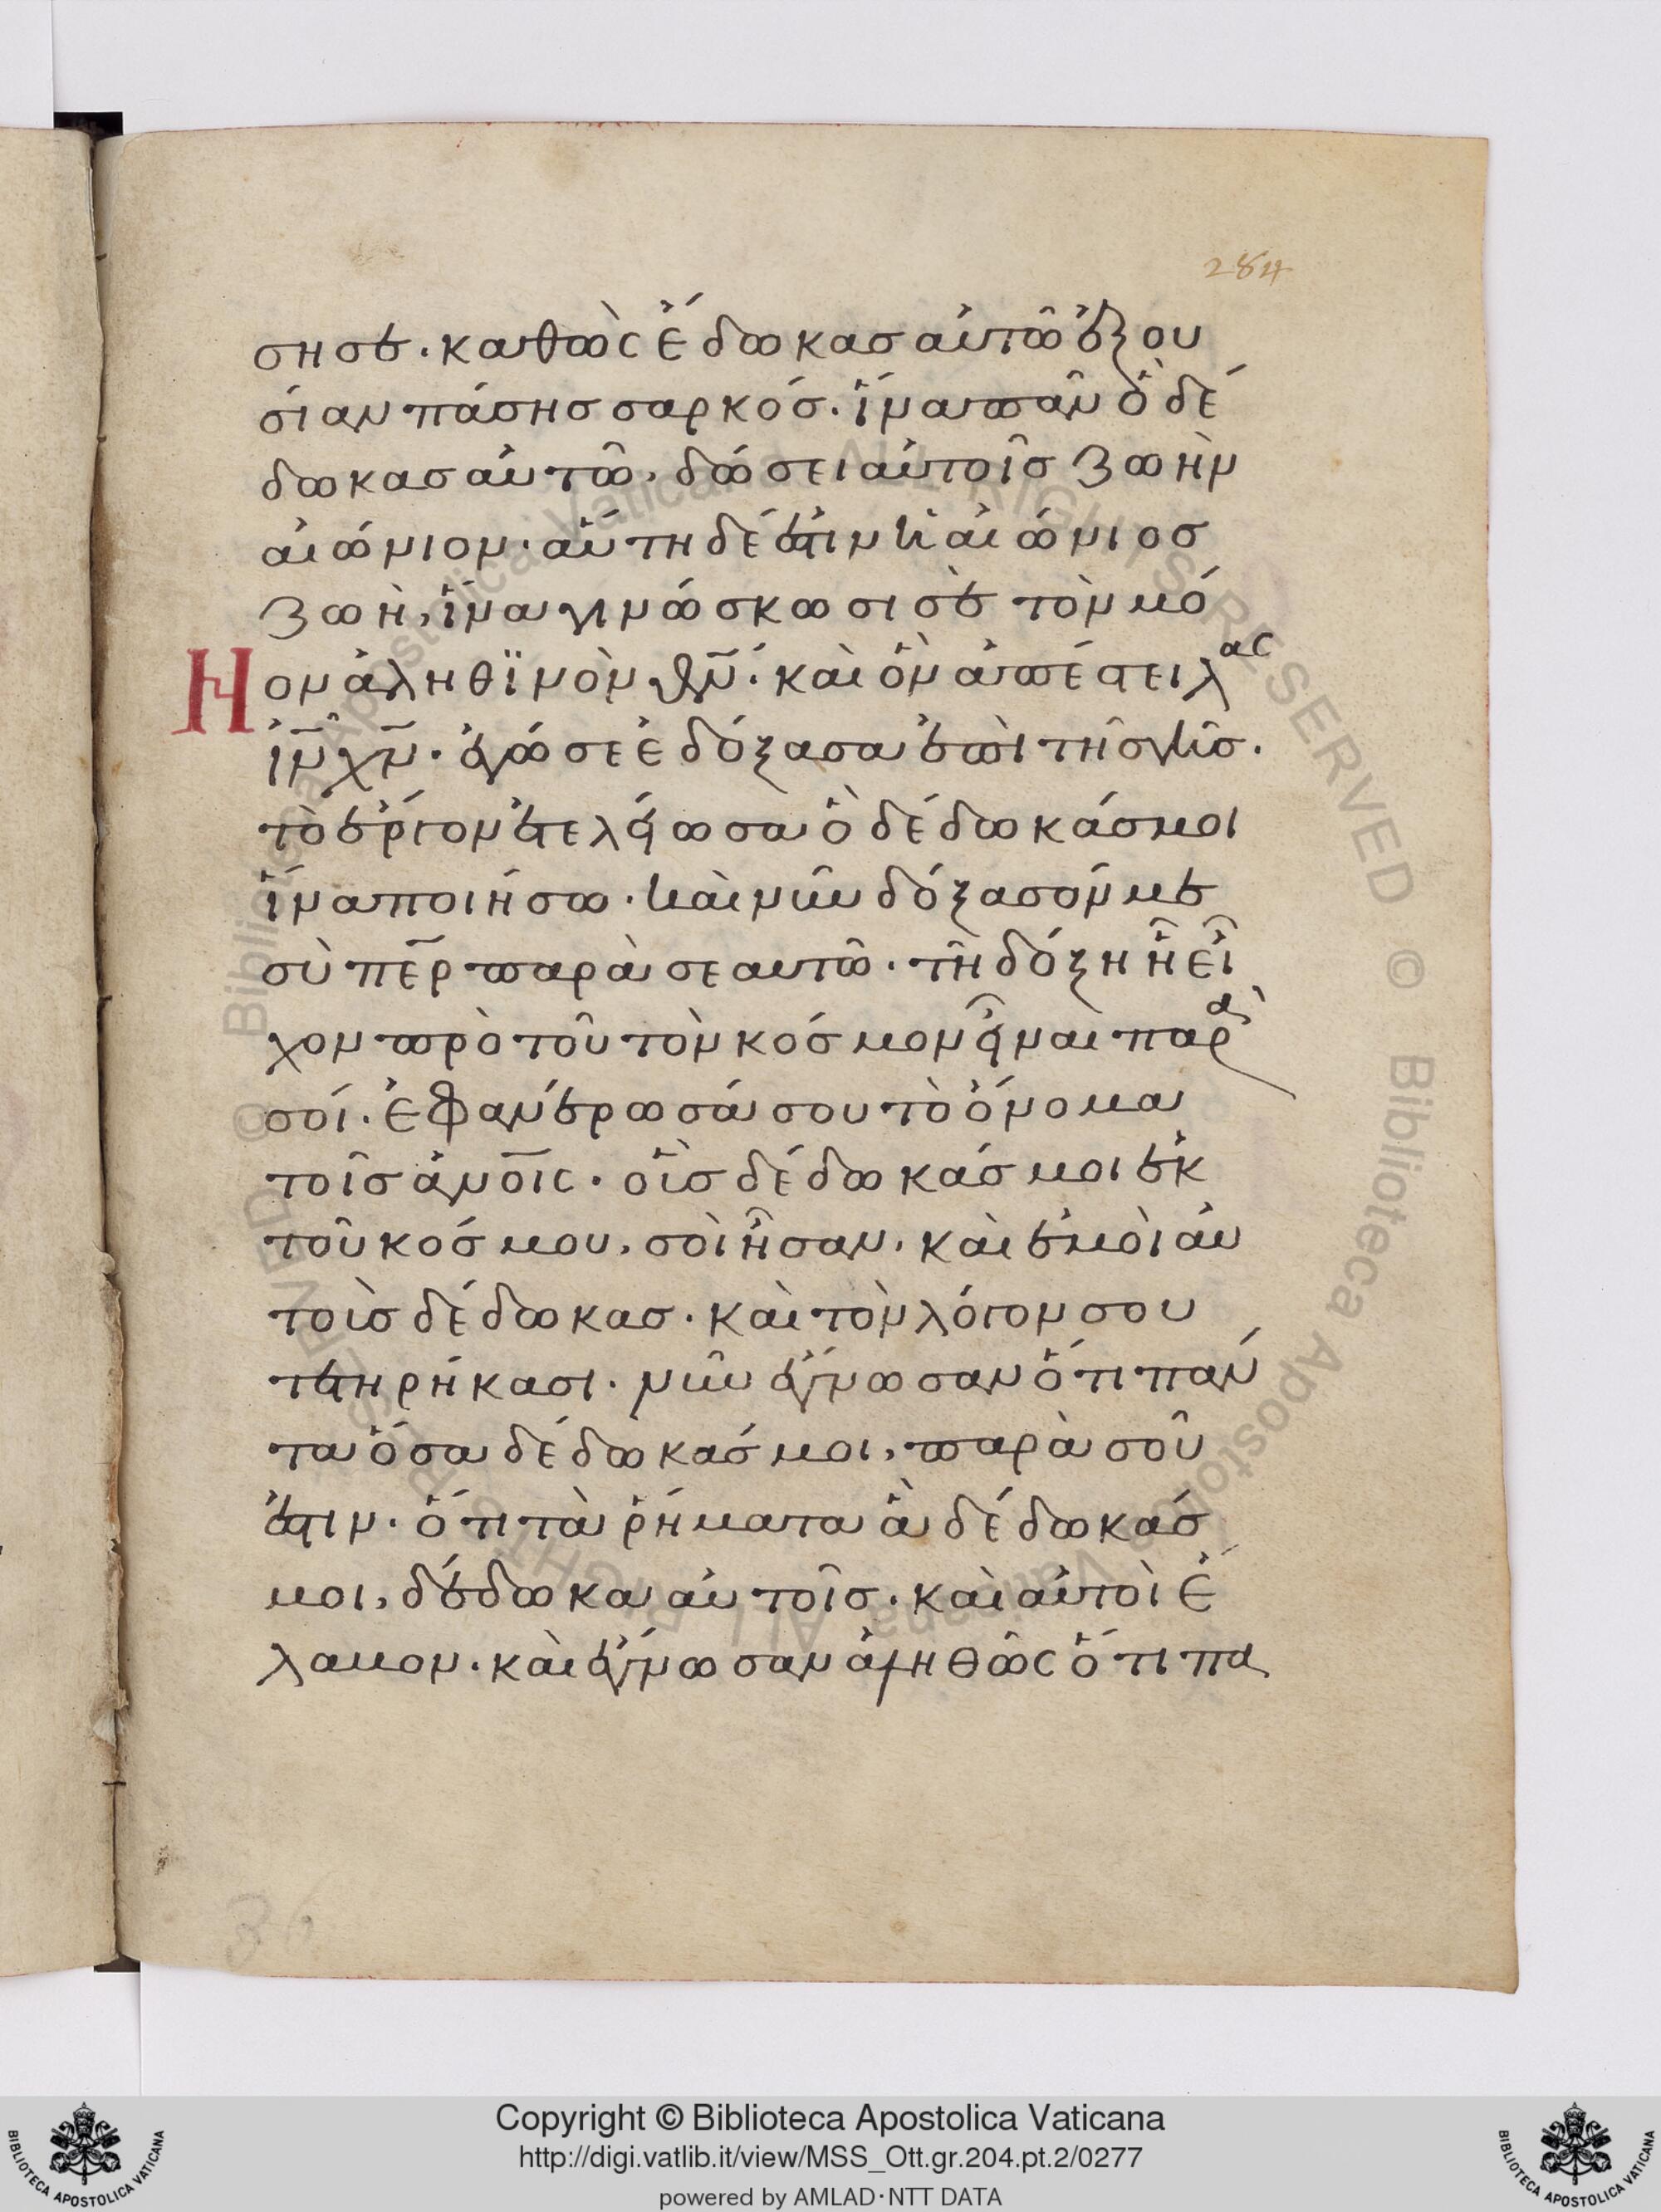 284
σησε. καθὼς ἔδωκασ αὐτῶ ἐξου
σίαν πάσησ σαρκόσ. ἵνα πᾶν ὃ δέ
δωκασ αὐτῶ, δώσει αὐτοῖσ ζωὴν
αἰώνιον. αὕτη δέ ἐστιν ἡ αἰώνιοσ
ζωὴ, ἵνα γινώσκωσι σὲ τὸν μό
Νον ἀληθϊνὸν θν̅. καὶ ὃν ἀπέστειλας
ιν̅ χν̅. ἐγώ σε ἐδόξασα ἐπὶ τῆσ γῆσ.
τὸ ἔργον ἐτελείωσα ὃ δέδωκάσ μοι
ἵνα ποιήσω. καὶ νῦν δόξασόν με
σὺ πε̅ρ παρὰ σεαυτῶ. τῆ δόξη ἧ εἶ
χον πρὸ τοῦ τὸν κόσμον εἶναι παρὰ
σοί. ἐφανέρωσά σου τὸ ὄνομα
τοῖσ ἀνο̅ις. οἷσ δέδωκάσ μοι ἐκ
τοῦ κόσμου, σοὶ ἦσαν. καὶ ἐμοὶ αὐ
τοὶσ δέδωκασ. καὶ τὸν λόγον σου
τετηρήκασι. νῦν ἔγνωσαν ὅτι πάν
τα ὅσα δέδωκάσ μοι, παρὰ σοῦ
ἐστιν. ὅτι τὰ ῥήματα ἃ δέδωκάσ
μοι, δέδωκα αὐτοῖσ. καὶ αὐτοὶ ἔ
λαβον. καὶ ἔγνωσαν ἀληθῶς ὅτι πα
Copyright © Biblioteca Apostolica Vaticana
http://digi.vatlib.it/view/MSS_Ott.gr.204.pt.2/0277
powered by AMLAD·NTT DATA
BIBLIOTECA APOSTOLICA VATICANA
BIBLIOTECA APOSTOLICA VATICANA